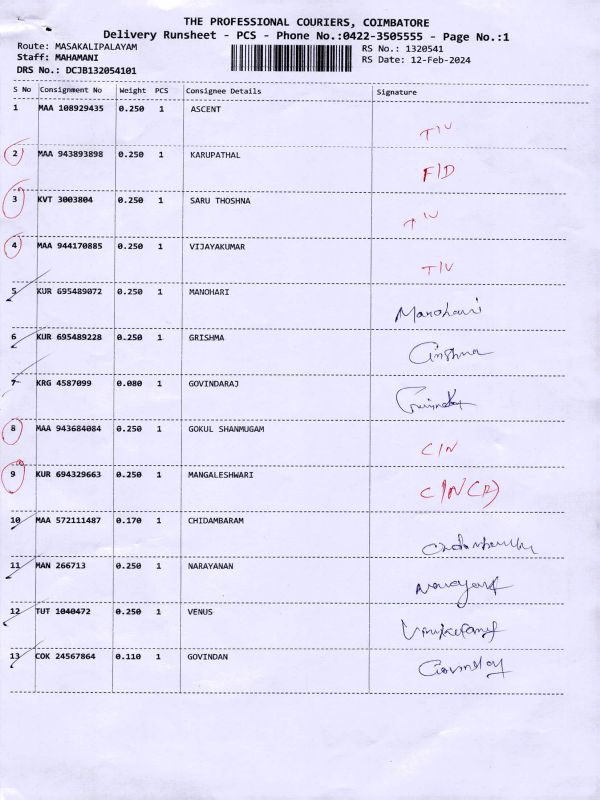 THE PROFESSIONAL COURIERS, COIMBATORE
Delivery Runsheet - PCS - Phone No.:0422-3505555 - Page No.:1
Route: MASAKALIPALAYAM RS No.: 1320541
Staff: MAHAMANI RS Date: 12-Feb-2024
DRS No.: DCJB132054101
S No Consignment No Weight PCS Consignee Details Signature
1 MAA 108929435 0.250 1 ASCENT
T/U
2 MAA 943893898 0.250 1 KARUPATHAL
F/D
3 KVT 3003804 0.250 1 SARU THOSHNA
4 MAA 944170885 0.250 1 VIJAYAKUMAR
T/U
5 KUR 695489072 0.250 1 MANOHARI
Manohari
6 KUR 695489228 0.250 1 GRISHMA
Grishma
7 KRG 4587099 0.080 1 GOVINDARAJ
8 MAA 943684084 0.250 1 GOKUL SHANMUGAM
C/N
9 KUR 694329663 0.250 1 MANGALESHWARI
C/N(R)
10 MAA 572111487 0.170 1 CHIDAMBARAM
11 MAN 266713 0.250 1 NARAYANAN
12 TUT 1040472 0.250 1 VENUS
13 COK 24567864 0.110 1 GOVINDAN